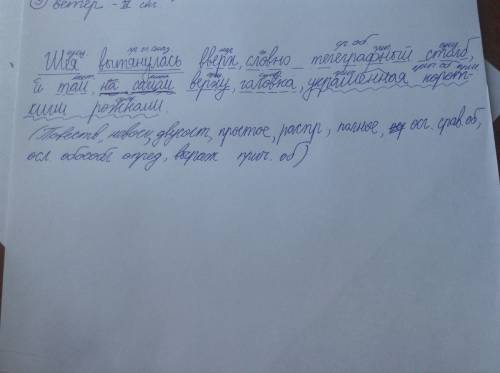 ③ ветер - II скл
Шея вытянулась вверх, словно телеграфный столб,
и там, на самом верху, головка, украшенная корот-
кими рожками.
(Повеств, невоскл, двусост, простое, распр, полное, осл. срав. об,
осл. обособл опред, выраж прич. об)